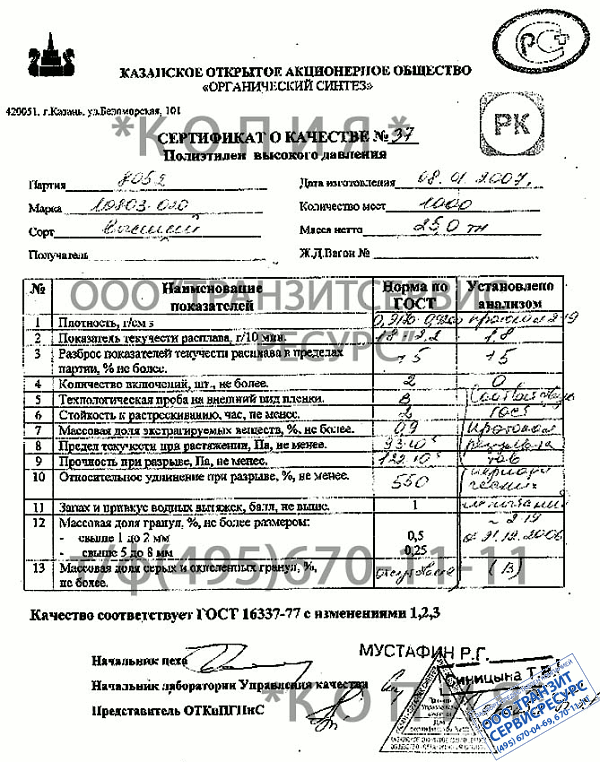 КАЗАНСКОЕ ОТКРЫТОЕ АКЦИОНЕРНОЕ ОБЩЕСТВО
«ОРГАНИЧЕСКИЙ СИНТЕЗ»
420051, г.Казань, ул.Беломорская, 101
*КОПИЯ*
СЕРТИФИКАТ О КАЧЕСТВЕ № 37
Полиэтилен высокого давления
РК
Партия 8052
Дата изготовления 08.01.2007.
Марка 10803-020
Количество мест 1000
Сорт высший
Масса нетто 25,0 тн
Получатель
Ж.Д.Вагон №
ООО "ТРАНЗИТСЕРВИС РЕСУРС"
№ Наименование показателей Норма по ГОСТ Установлено анализом
1 Плотность, г/см 3
2 Показатель текучести расплава, г/10 мин. 1,8 - 2,2 1,8
3 Разброс показателей текучести расплава в пределах
партии, % не более. ±5 ±5
4 Количество включений, шт., не более. 2 0
5 Технологическая проба на внешний вид пленки. В
6 Стойкость к растрескиванию, час, не менее. 2 ГОСТ
7 Массовая доля экстрагируемых веществ, %, не более. 0,9
8 Предел текучести при растяжении, Па, не менее. 93·10⁵
9 Прочность при разрыве, Па, не менее. 122·10⁵
10 Относительное удлинение при разрыве, %, не менее. 550
11 Запах и привкус водных вытяжек, балл, не выше. 1
12 Массовая доля гранул, %, не более размером: № 219
- свыше 1 до 2 мм 0,5 от 21.12.2006
- свыше 5 до 8 мм 0,25
т/ф(495)670-11-11
13 Массовая доля серых и окисленных гранул, %,
не более. (В)
Качество соответствует ГОСТ 16337-77 с изменениями 1,2,3
Начальник цеха
МУСТАФИН Р.Г.
Начальник лаборатории Управления качества
Синицына Т.
Представитель ОТКиПГПиС
*КОПИЯ*
ООО ТРАНЗИТ
СЕРВИСРЕСУРС
(495) 670-04-69, 670-11-11